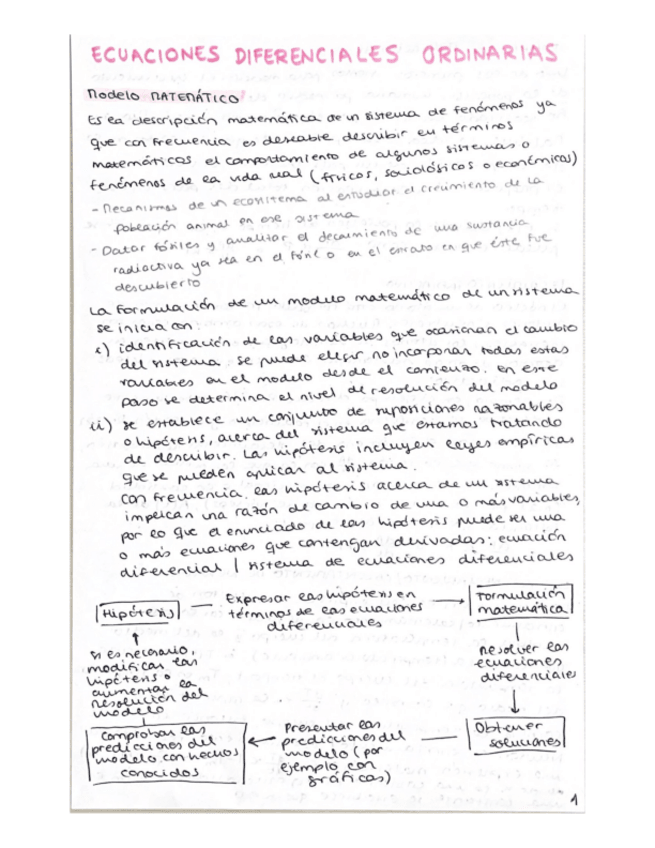 ECUACIONES DIFERENCIALES ORDINARIAS
Modelo MATEMÁTICO
Es la descripción matemática de un sistema de fenómenos ya
que con frecuencia es deseable describir en términos
matemáticos el comportamiento de algunos sistemas o
fenómenos de la vida real (físicos, sociológicos o económicos)
- Mecanismos de un ecosistema al estudiar el crecimiento de la
población animal en ese sistema
- Datar fósiles y analizar el decaimiento de una sustancia
radiactiva ya sea en el fósil o en el estrato en que éste fue
descubierto
La formulación de un modelo matemático de un sistema
se inicia con:
i) identificación de las variables que ocasionan el cambio
del sistema. Se puede elegir no incorporar todas estas
variables en el modelo desde el comienzo. en este
paso se determina el nivel de resolución del modelo
ii) se establece un conjunto de suposiciones razonables
o hipótesis, acerca del sistema que estamos tratando
de describir. Las hipótesis incluyen leyes empíricas
que se pueden aplicar al sistema.
Con frecuencia, las hipótesis acerca de un sistema
implican una razón de cambio de una o más variables,
por lo que el enunciado de las hipótesis puede ser una
o más ecuaciones que contengan derivadas: ecuación
diferencial / sistema de ecuaciones diferenciales
Hipótesis
Expresar las hipótesis en
términos de las ecuaciones
diferenciales
Formulación
matemática
Resolver las
ecuaciones
diferenciales
Obtener
soluciones
Presentar las
predicciones del
modelo (por
ejemplo con
gráficas)
Comprobar las
predicciones del
modelo con hechos
conocidos
Si es necesario,
modificar las
hipótesis o
aumentar la
resolución del
modelo
1